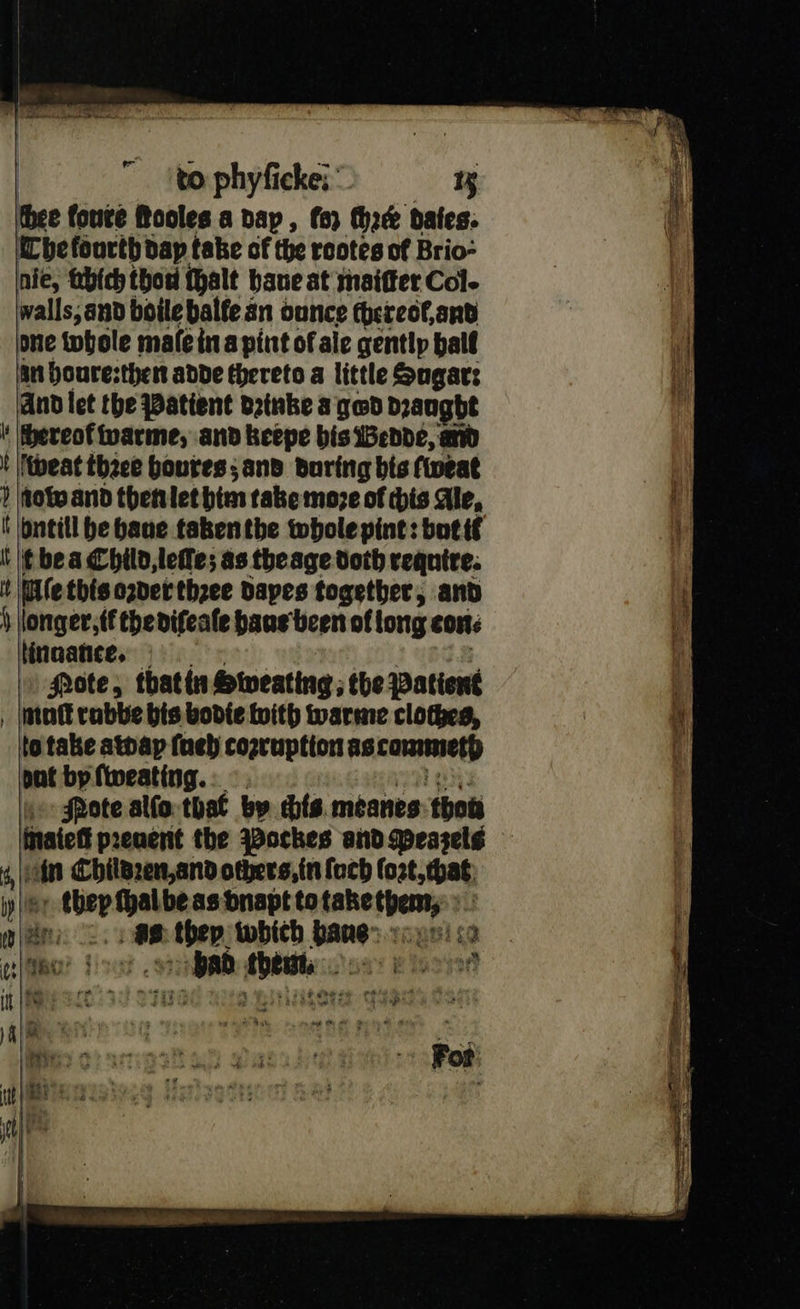 to phyſicke. 15
thee foure ſtooles a day, for three daies.
The fourth day take of the rootes of Brio-
nie, which thou ſhalt haue at maiſter Col-
walls, and boile halfe an ounce thereof, and
one whole maſe in a pint of ale gently half
an houre: then adde thereto a little Sugar:
And let the Patient drinke a good draught
thereof warme, and keepe his Bedde, and
ſweat three houres; and during his ſweat
now and then let him take more of this Ale,
vntill he haue taken the whole pint: but if
it be a Child, leſſe; as the age doth require.
Uſe this order three dayes together, and
longer, if the diſeaſe haue been of long con-
tinuance.
Note, that in Sweating, the Patient
muſt rubbe his bodie with warme clothes,
to take away ſuch corruption as commeth
out by ſweating.
Note alſo that by this meanes thou
maieſt preuent the Pockes and Meazels
in Children, and others, in ſuch ſort, that
they ſhal be as vnapt to take them,
as they which haue
had them.
For